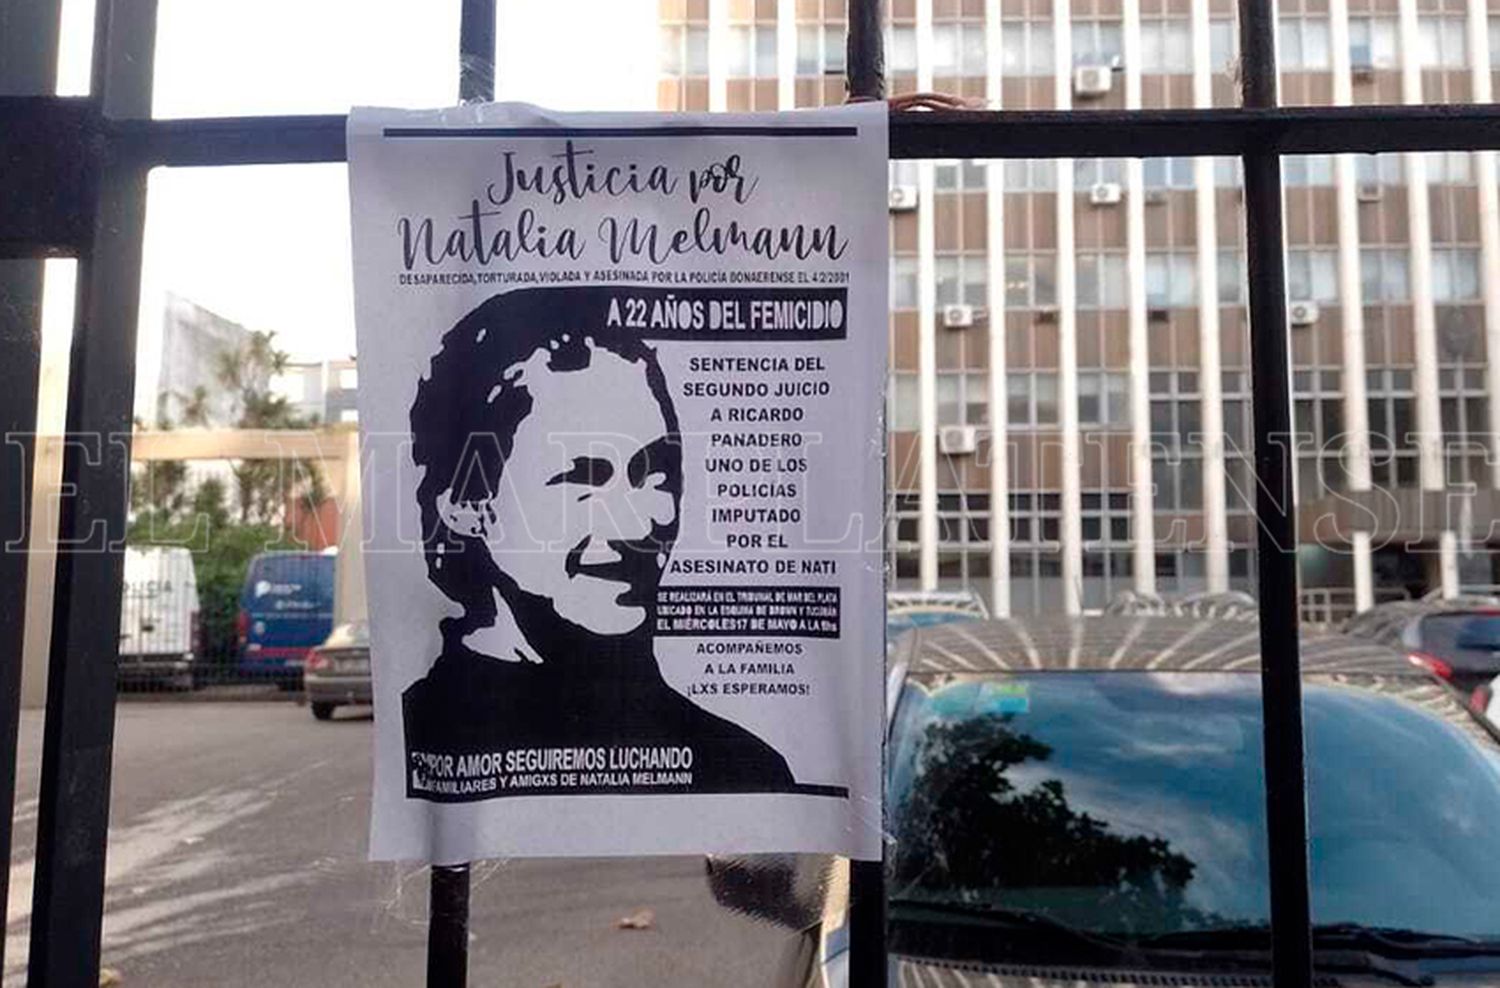 Justicia por
Natalia Melmann
DESAPARECIDA, TORTURADA, VIOLADA Y ASESINADA POR LA POLICÍA BONAERENSE EL 4/2/2001
A 22 AÑOS DEL FEMICIDIO
SENTENCIA DEL
SEGUNDO JUICIO
A RICARDO
PANADERO
UNO DE LOS
POLICIAS
IMPUTADO
POR EL
ASESINATO DE NATI
SE REALIZARÁ EN EL TRIBUNAL DE MAR DEL PLATA
UBICADO EN LA ESQUINA DE BROWN Y TUCUMÁN
EL MIÉRCOLES 17 DE MAYO A LA
ACOMPAÑEMOS
A LA FAMILIA
¡LXS ESPERAMOS!
POR AMOR SEGUIREMOS LUCHANDO
FAMILIARES Y AMIGXS DE NATALIA MELMANN
EL MARPLATENSE